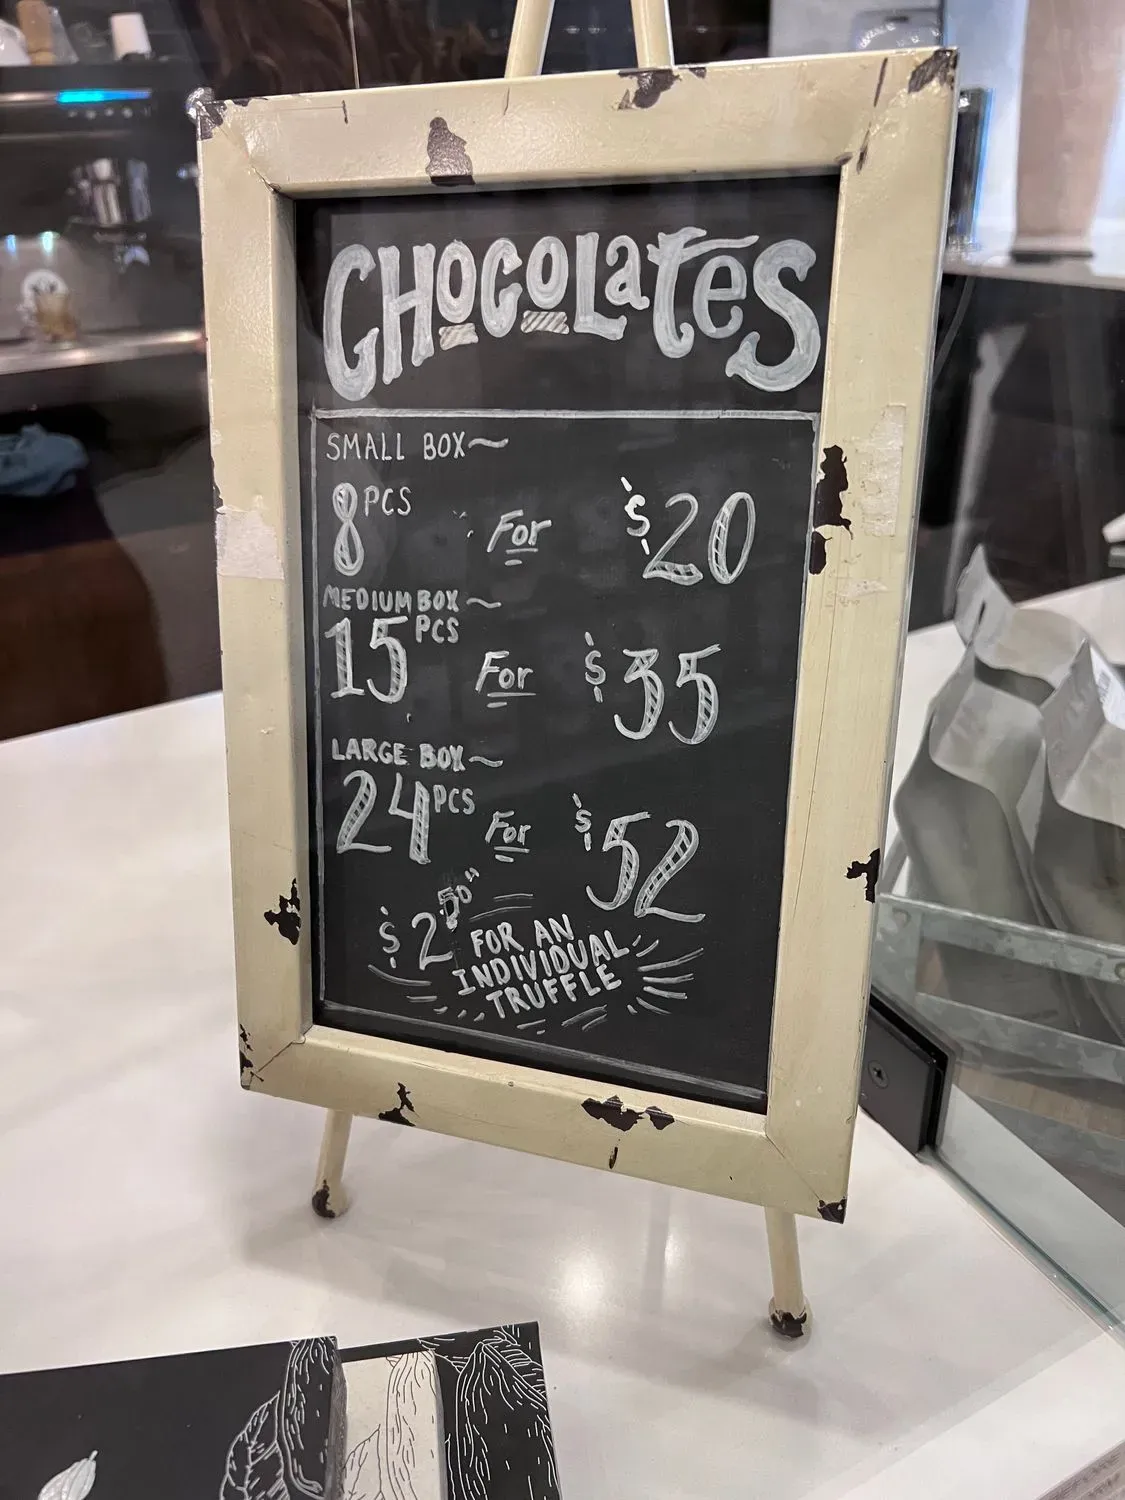 CHOCOLATES
SMALL BOX~
8 PCS For $20
MEDIUM BOX~
15 PCS For $35
LARGE BOX~
24 PCS For $52
$2.50" FOR AN
INDIVIDUAL
TRUFFLE